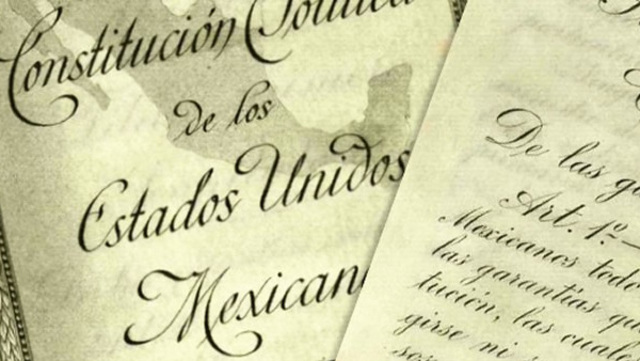 Constitución Política
de los
Estados Unidos
Mexican
De las g
Art. 1º—
Mexicanos todo
las garantías qu
tución, las cuale
girse ni